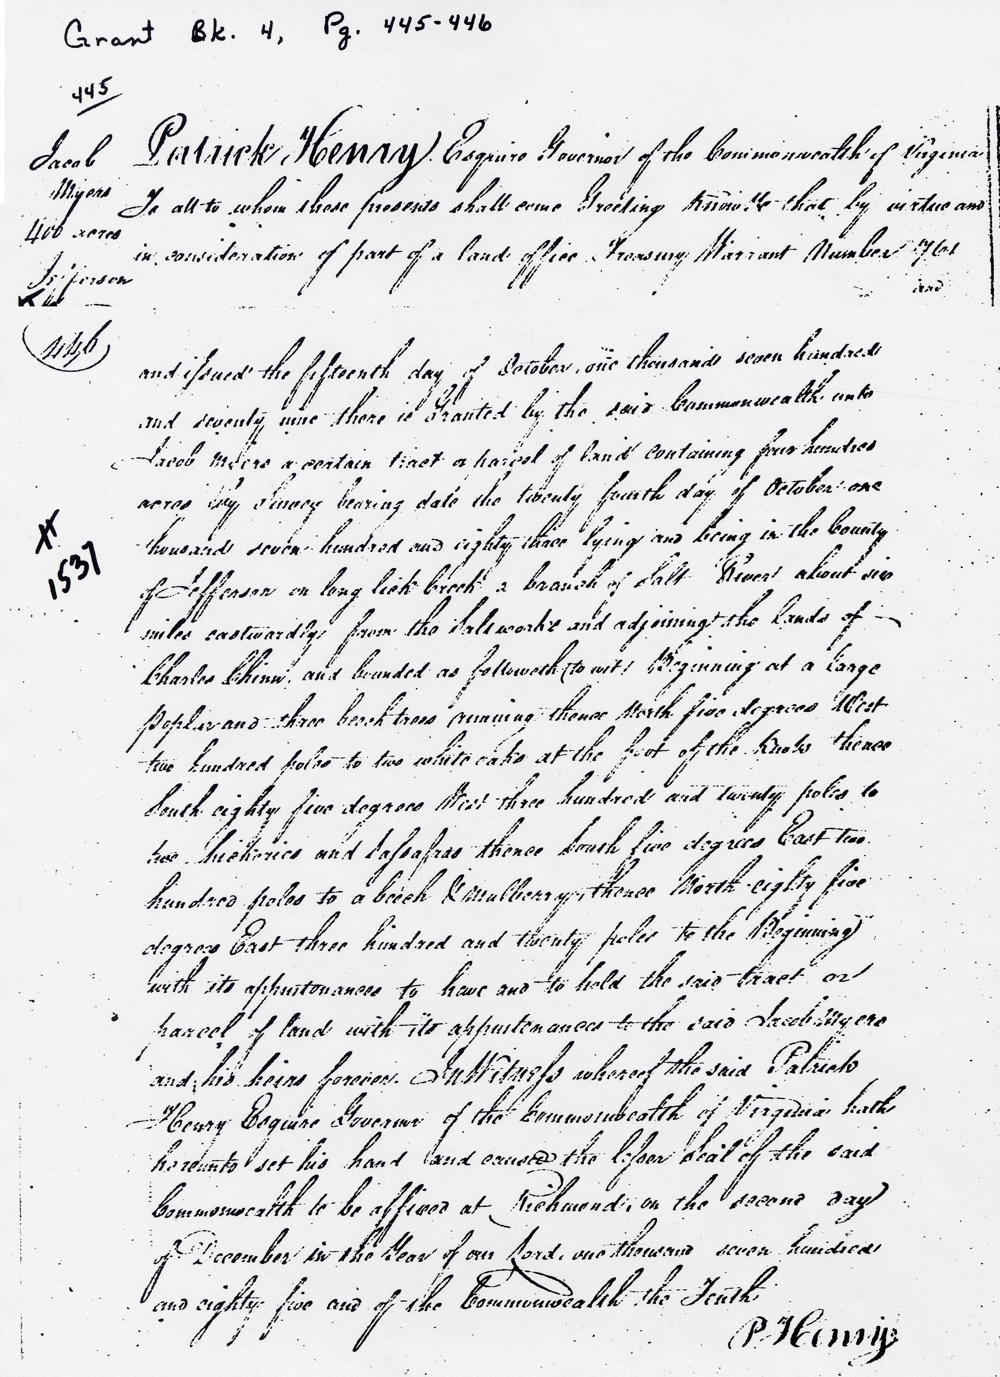 Grant Bk. 4, Pg. 445-446
445
Jacob
Myers
400 acres
Jefferson
Patrick Henry Esquire Governor of the Commonwealth of Virginia
To all to whom these presents shall come Greeting Know Ye that by virtue and
in consideration of part of a land office Treasury Warrant Number 761
and
446
and issued the fifteenth day of October one thousand seven hundred
and seventy nine there is Granted by the said Commonwealth unto
Jacob Myers a certain tract or parcel of land containing four hundred
acres by Survey bearing date the twenty fourth day of October one
thousand seven hundred and eighty three lying and being in the County
of Jefferson on long lick Creek a branch of Salt River about six
miles eastwardly from the Saltworks and adjoining the lands of
Charles Chinn, and bounded as followeth (to wit) Beginning at a large
Poplar and three beech trees running thence North five degrees West
two hundred poles to two white oaks at the foot of the Knobs thence
South eighty five degrees West three hundred and twenty poles to
two hickories and Sassafras thence South five degrees East two
hundred poles to a beech & Mulberry, thence North eighty five
degrees East three hundred and twenty poles to the Beginning
with its appurtenances to have and to hold the said tract or
parcel of land with its appurtenances to the said Jacob Myers
and his heirs forever. In Witness whereof the said Patrick
Henry Esquire Governor of the Commonwealth of Virginia hath
hereunto set his hand and caused the lesser Seal of the said
Commonwealth to be affixed at Richmond, on the second day
of December in the Year of our Lord, one thousand seven hundred
and eighty five and of the Commonwealth the Tenth
P. Henry
# 1537